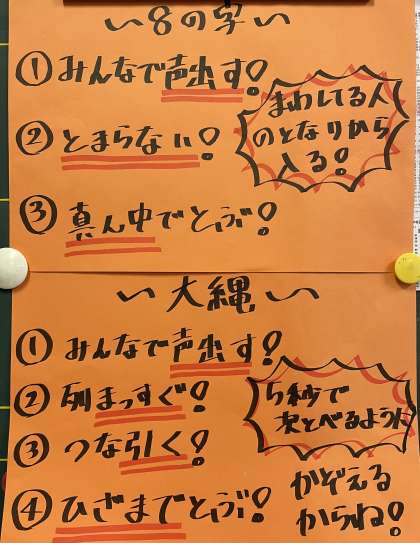 〜8の字〜
①みんなで声出す!
まわしてる人
のとなりから
入る!
②とまらない!
③真ん中でとぶ!
〜大縄〜
①みんなで声出す!
②列まっすぐ!
5秒で
次とべるように
③つな引く!
④ひざまでとぶ!
かぞえる
からね!